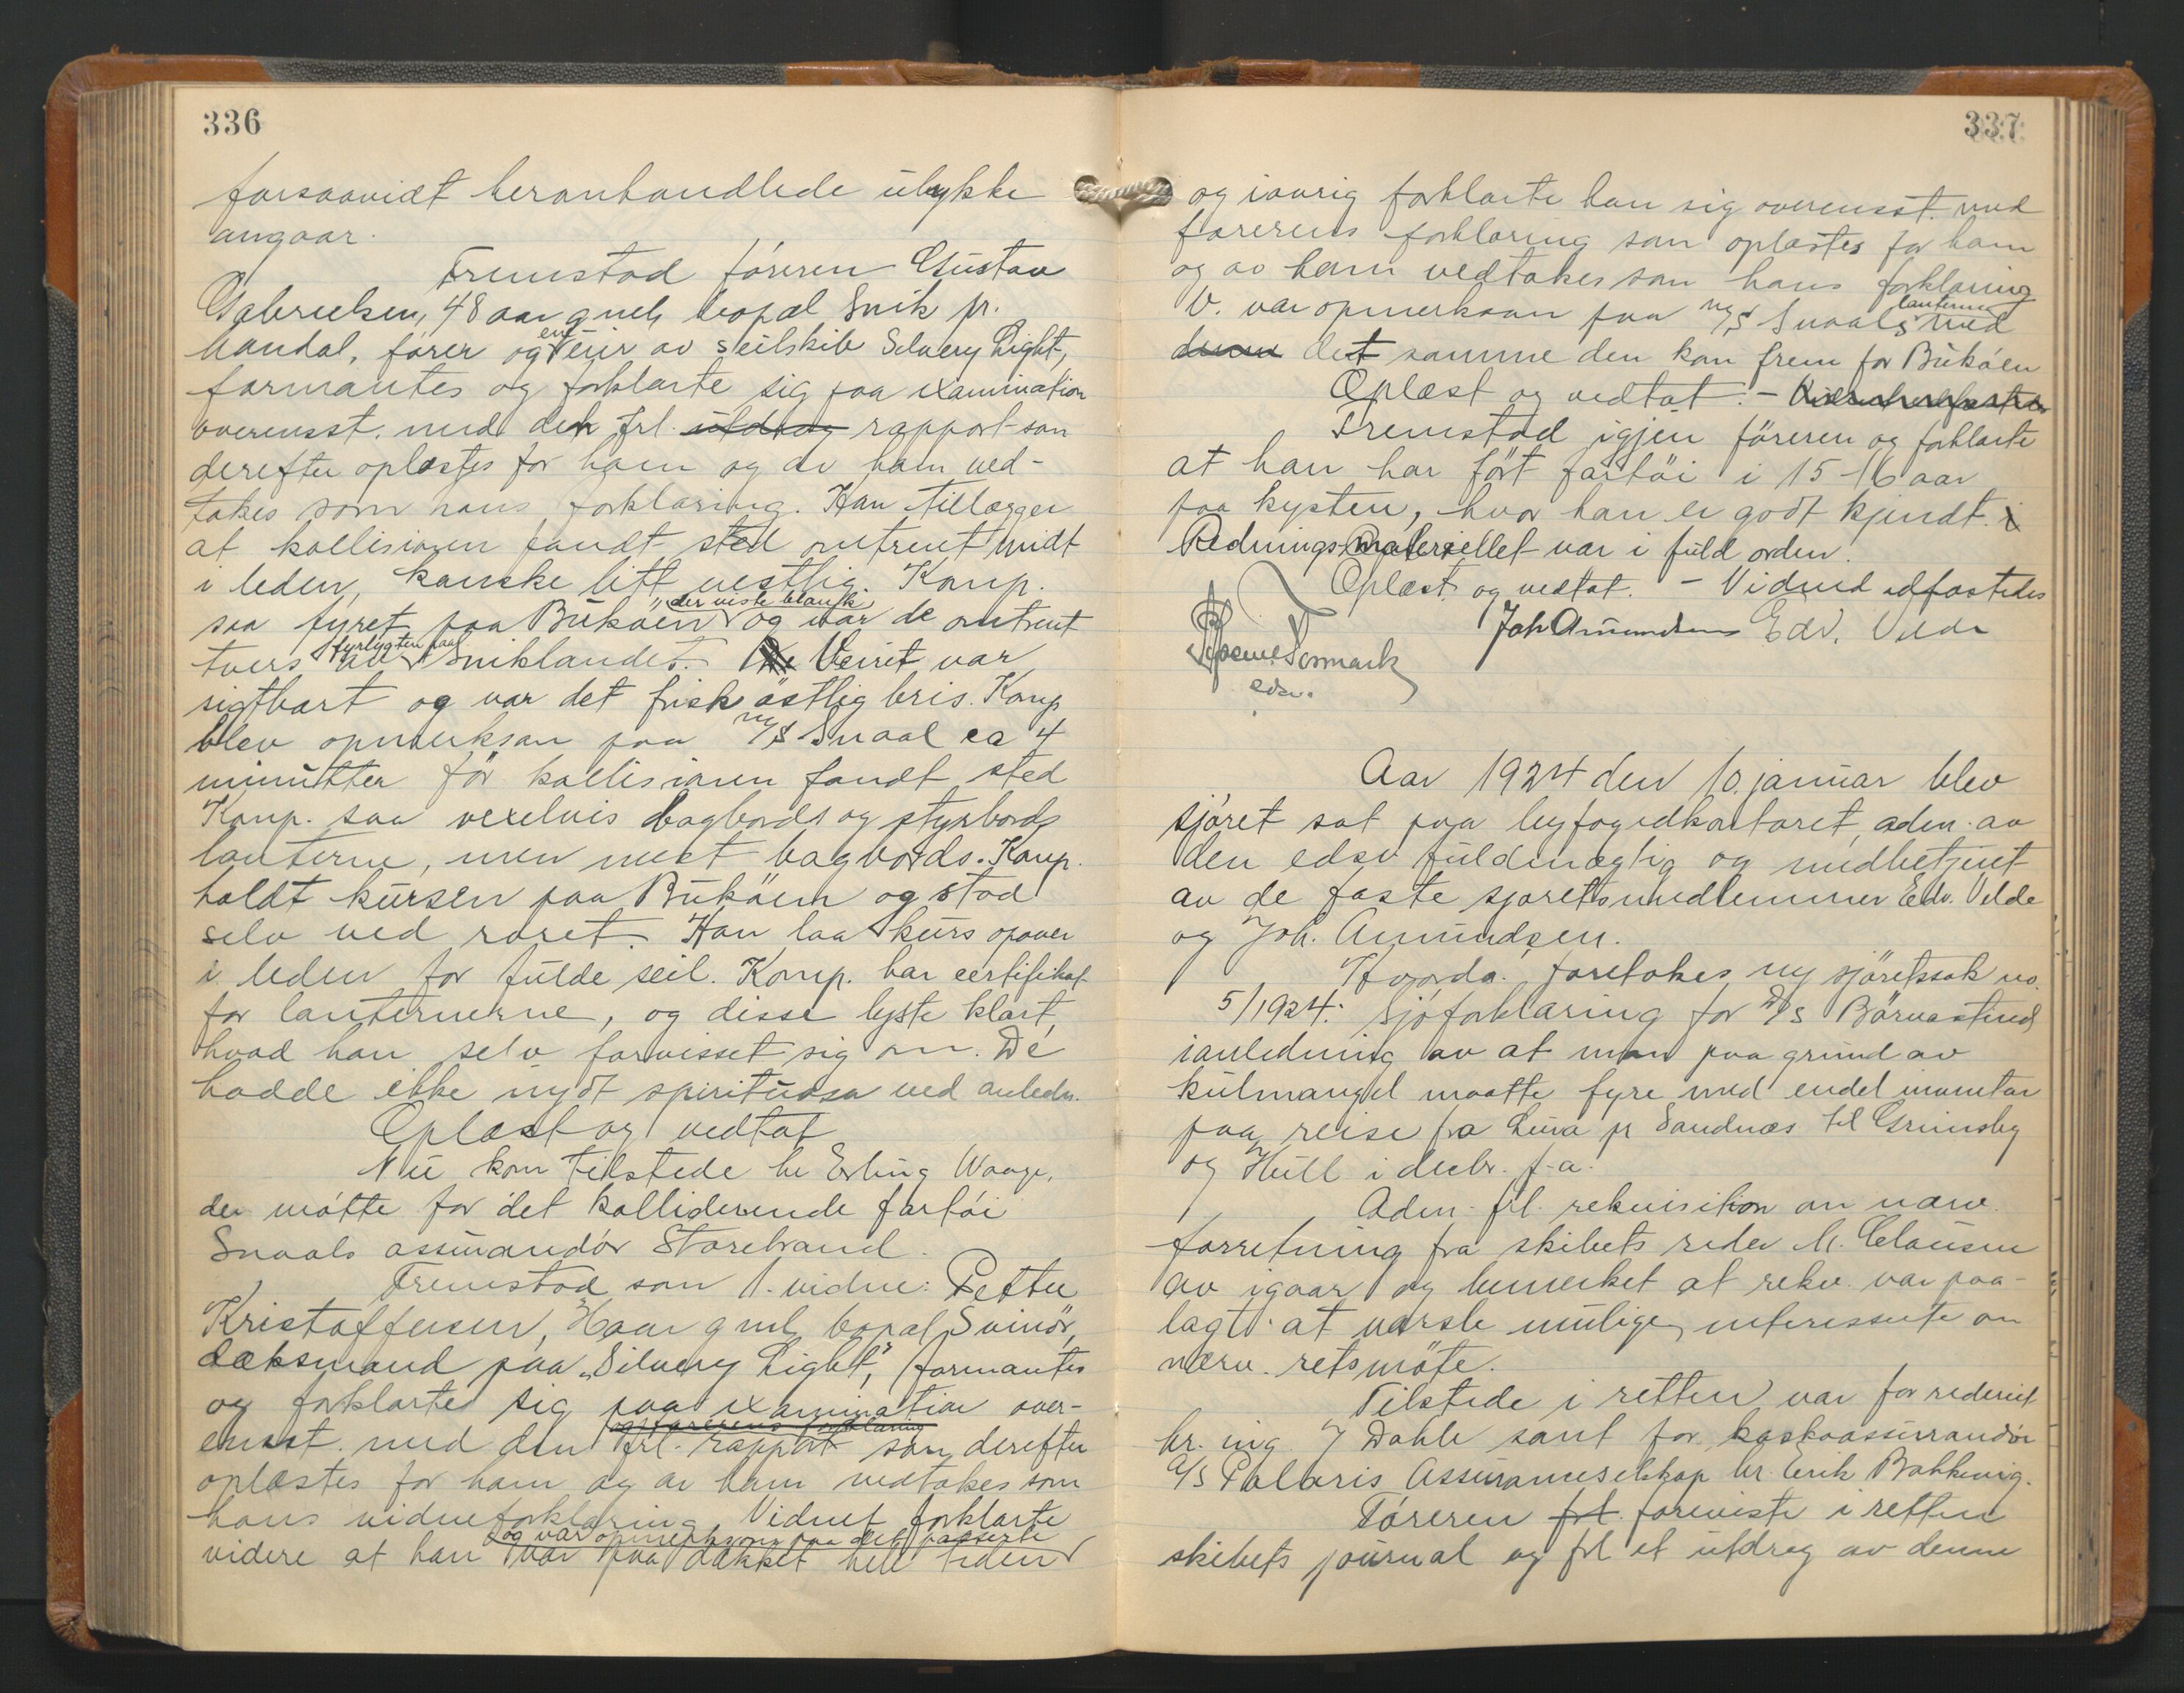 336
forsaavidt heromhandlede ulykke
angaar.
Fremstod föreren Gustav
Gabrielsen, 48 aar gml, bopæl Snik pr.
Mandal, fører og eneeier av seilskib Silvery Light,
formantes og forklarte sig paa examination
overensst. med den frl. utdrag rapport som
derefter oplæstes for ham og av ham ved-
takes som hans forklaring. Han tillægger
at kollisionen fandt sted omtrent midt
i leden, kanske litt vestlig. Komp.
der viste blank
saa fyret paa Bukøen og var de omtrent
fyrlygten paa
tvers av Sniklandet. Veiret var
sigtbart og var det frisk østlig bris. Komp
blev opmerksom paa M/S Snaal ca 4
minutter för kollisionen fandt sted
Komp. saa vexelvis bagbords og styrbords
lanterne, men mest bagbords. Komp.
holdt kursen paa Buköen og stod
selv ved roret. Han laa kurs opover
i leden for fulde seil. Komp. har certifikat
for lanternerne, og disse lyste klart,
hvad han selv forvisset sig om. De
hadde ikke nydt spirituosa ved anledn.
Oplæst og vedtat
Nu kom tilstede hr Erling Waage,
der møtte for det kolliderende fartøi
Snaals assurandør Storebrand.
Fremstod som 1. vidne: Petter
Kristoffersen, aar gml, bopæl Svinör,
dæksmand paa "Silvery Light", formantes
og forklarte sig paa examination over-
og førerens forklaring
ensst. med den frl. rapport som derefter
oplæstes for ham og av ham vedtakes som
hans vidneforklaring. Vidnet forklarte
og var opmerksom paa det passerte
videre at han var paa dækket hele tiden
337
og iøvrig forklarte han sig overensst. med
førerens forklaring som oplæstes for ham
og av ham vedtakes som hans forklaring
lanterne
V. var opmerksom paa M/S Snaals med
det samme den kom frem for Buköen
Oplæst og vedtat. -
Fremstod igjen föreren og forklarte
at han har fört fartöi i 15-16 aar
paa kysten, hvor han er godt kjendt.
Rednings-materiellet var i fuld orden.
Oplæst og vedtat. - Vidned edfæstedes
Joh Amundsen Edv. Velde
edsv.
Aar 1924 den 10. januar blev
sjöret sat paa byfogedkontoret, adm. av
den edsv fuldmægtig og medbetjent
av de faste sjøretsmedlemmer Edv. Velde
og Joh. Amundsen.
Hvorda: foretokes ny sjöretssak no.
5/1924: Sjöforklaring for D/S Börvasstind
ianledning av at man paa grund av
kulmangel maatte fyre med endel inventar
paa reise fra Lura pr Sandnæs til Grimsby
og Hull i decbr. f.a.
Adm. frl. rekvisition om nærv.
forretning fra skibets reder M. Clausen
av igaar og bemerket at rekv. var paa-
lagt at varsle mulige interesserte om
nærv. retsmöte.
Tilstede i retten var for rederiet
hr. ing. J Dahle samt for kaskoassurandör
A/S Polaris Assuranceselskap hr. Erik Bakkevig.
Föreren frl. foreviste i retten
skibets journal og frl et utdrag av denne